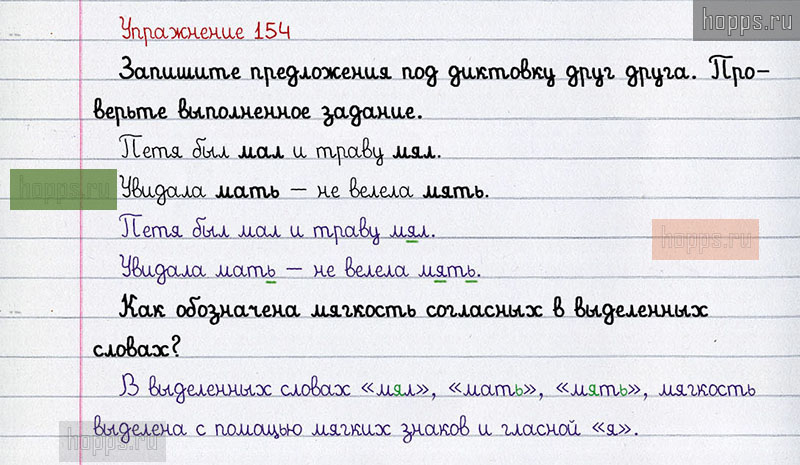 hopps.ru
Упражнение 154
Запишите предложения под диктовку друг друга. Про-
верьте выполненное задание.
Петя был мал и траву мял.
hopps.ru
Увидала мать – не велела мять.
Петя был мал и траву мял.
hopps.ru
Увидала мать – не велела мять.
Как обозначена мягкость согласных в выделенных
словах?
В выделенных словах «мял», «мать», «мять», мягкость
выделена с помощью мягких знаков и гласной «я».
hopps.ru